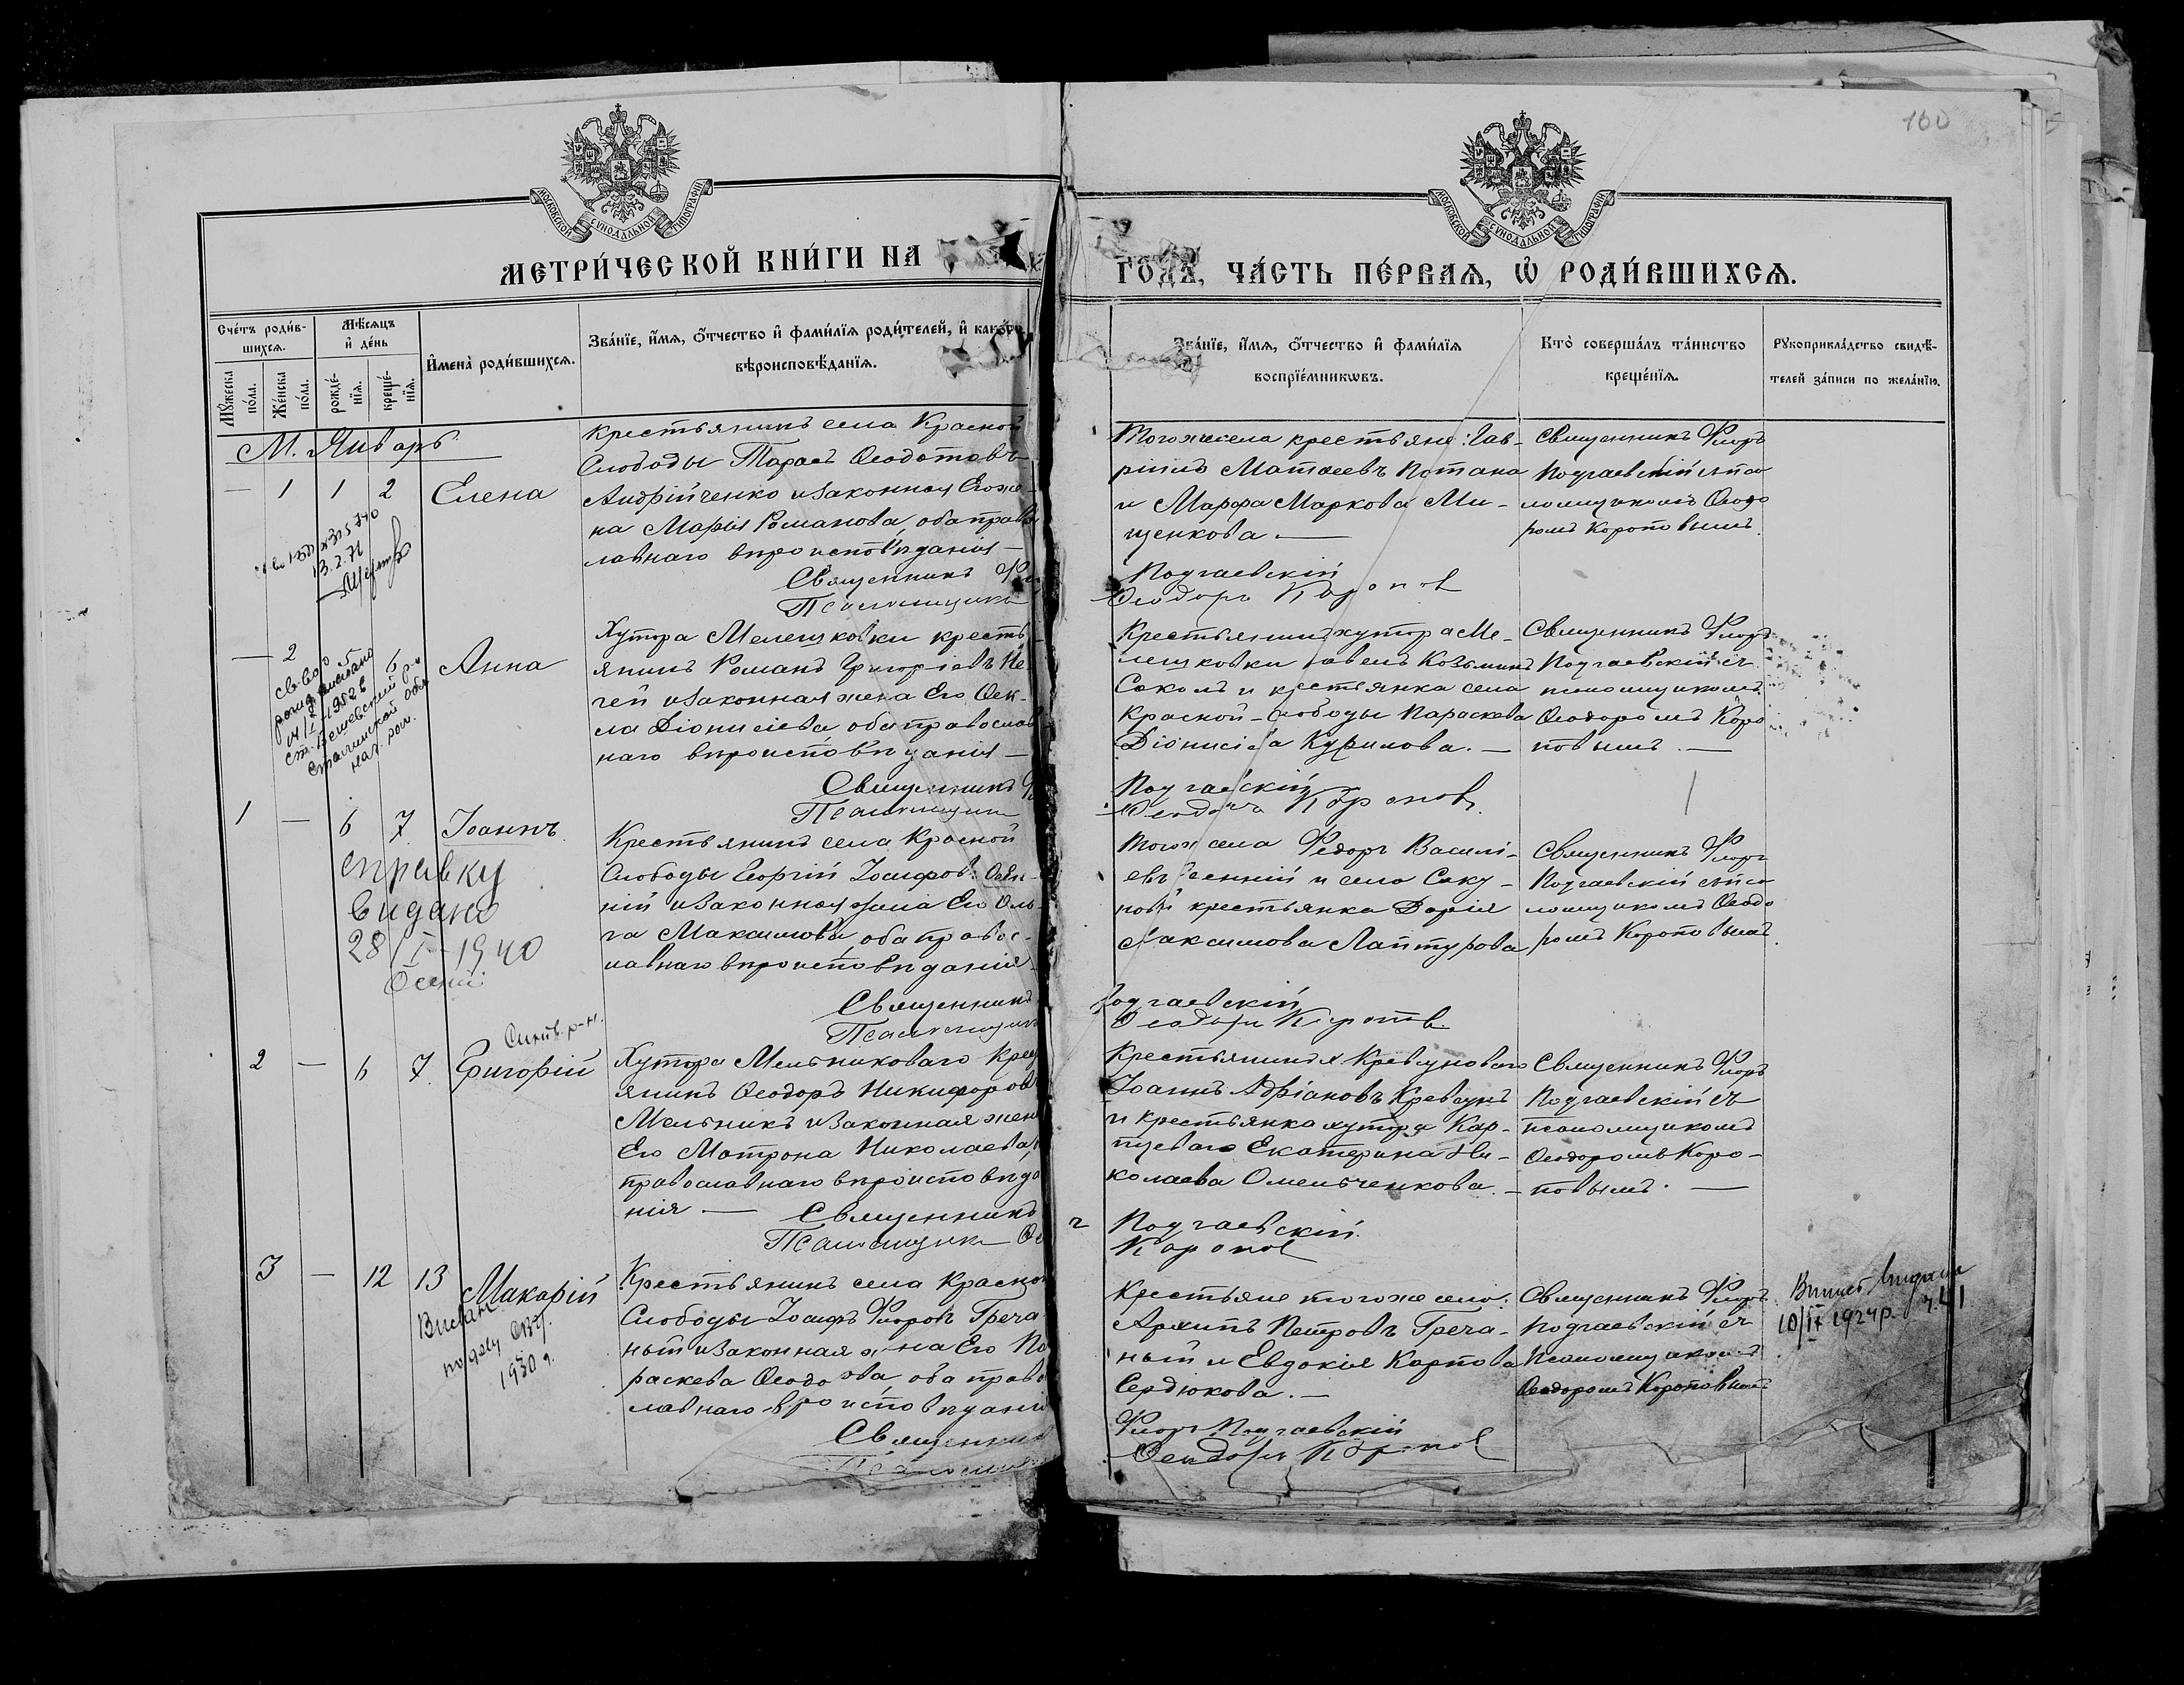 160
МОСКОВСКОЙ СУНОДАЛЬНОЙ ТИПОГРАФІИ
МОСКОВСКОЙ СУНОДАЛЬНОЙ ТИПОГРАФІИ
МЕТРИ́ЧЕСКОЙ КНИ́ГИ НА
ГО́ДЪ, ЧА́СТЬ ПЕ́РВАѦ, Ѽ РОДИ́ВШИХСѦ.
Сче́тъ роди́в-
шихсѧ.
Мѣ́сѧцъ
и҆ де́нь
Мꙋ́жеска по́ла.
Же́нска по́ла.
рожде́-
нїѧ.
креще́-
нїѧ.
И҆мена̀ роди́вшихсѧ.
Зва́нїе, и҆́мѧ, ѻ҆́тчество и҆ фами́лїѧ роди́телей, и҆ како́гѡ
вѣроисповѣ́данїѧ.
Зва́нїе, и҆́мѧ, ѻ҆́тчество и҆ фами́лїѧ
воспрїе́мникѡвъ.
Кто̀ соверша́лъ та́инство
креще́нїѧ.
Рꙋкоприкла́дство свидѣ́-
телей за́писи по жела́нїю.
М. Январь
— 1 1 2 Елена
13.2.71
Крестьянинъ села Красной
Слободы Тарасъ Ѳеодотовъ
Андрійченко и законная Его же-
на Марія Романова, оба право
лавнаго вѣроисповѣданія —
Священникъ
Псаломщикъ
Того же села крестьяне: Гав-
ріилъ Матѳеевъ Потапа
и Марфа Маркова Ми-
щенкова. —
Подгаевскій
Ѳеодоръ Коропов
Священникъ Флоръ
Подгаевскій съ пса
ломщикомъ Ѳеодо
ромъ Короповымъ.
— 2 5 6 Анна
св-во о
рожд. выслано
1952 г.
Сталинской обл.
Хутора Мелешковки кресть-
янинъ Романъ Григоріевъ Не-
чей и законная жена Его Ѳек-
ла Діонисіева, оба православ
наго вѣроисповѣданія —
Священникъ
Псаломщикъ
Крестьянинъ хутора Ме-
лешковки Павелъ Козьминъ
Соколъ и крестьянка села
Красной-Слободы Параскева
Діонисіева Курилова. —
Подгаевскій
Ѳеодоръ Коропов
Священникъ Флоръ
Подгаевскій съ
псаломщикомъ
Ѳеодоромъ Коро
повымъ. —
1 — 6 7 Іоаннъ.
справку
видано
28/I-1940
Осенній
Крестьянинъ села Красной
Слободы Георгій Іосифовъ Осен-
ній и законная жена Его Оль-
га Максимова, оба правос-
лавнаго вѣроисповѣданія
Священникъ
Псаломщикъ
Того же села Федоръ Василі-
евъ Осенній и села Саку-
новъ крестьянка Дарія
Максимова Лаптурова
Подгаевскій
Ѳеодоръ Коропов
Священникъ Флоръ
Подгаевскій съ пса
ломщикомъ Ѳеодо
ромъ Короповымъ
2 — 6 7 Григорій
Хутора Мельниковаго крес
янинъ Ѳеодоръ Никифоровъ
Мельникъ и законная жена
Его Матрона Николаева,
православнаго вѣроисповѣда
нія — Священникъ
Псаломщикъ
Крестьянинъ х. Кревсуноваго
Іоаннъ Адріановъ Кревсунъ
и крестьянка хутора Кар-
пцеваго Екатерина Ни-
колаева Омельченкова. —
Подгаевскій
Коропов
Священникъ Флоръ
Подгаевскій съ
псаломщикомъ
Ѳеодоромъ Коро-
повымъ. —
3 — 12 13 Макарій
1930 г.
Крестьянинъ села Красной
Слободы Іосифъ Флоровъ Греча
ный и законная жена Его Па
раскева Ѳеодорова, оба право
лавнаго вѣроисповѣданія
Священникъ
Псаломщикъ
Крестьяне того же села:
Архипъ Петровъ Греча-
ный и Евдокія Карпова
Сердюкова. —
Флоръ Подгаевскій
Ѳеодоръ Коропов
Священникъ Флоръ
Подгаевскій съ
псаломщикомъ
Ѳеодоромъ Короповымъ
Випись видана
10/IX 1924 р.